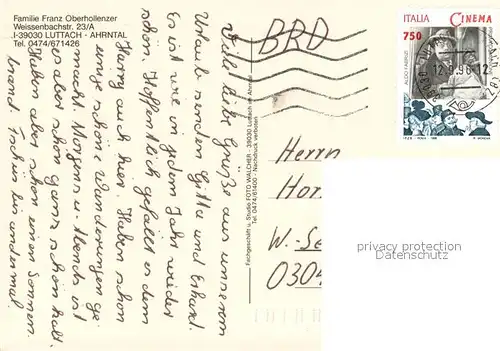 Familie Franz Oberhollenzer
Weissenbachstr. 23/A
I-39030 LUTTACH - AHRNTAL
Tel. 0474/671426
Viele liebe Grüße aus unserem
Urlaub senden Gitta und Erhard.
Es ist wie in jedem Jahr wieder
schön. Hoffentlich gefällt es dem
Harry auch hier. Haben schon
einige schöne Wanderungen ge-
macht. Morgens u. Abends ist
es aber schon ganz schön kalt.
Haben aber schon einen Sonnen-
brand. Tschüs bis andermal
Fachgeschäft u. Studio FOTO WALCHER - 39030 Luttach im Ahrntal
Tel. 0474/61400 - Nachdruck verboten
BRD
ITALIA CINEMA
750
ALDO FABRIZI
12.9.96
Herrn
Hor
W.-Se
0304
privacy protection
watermarks